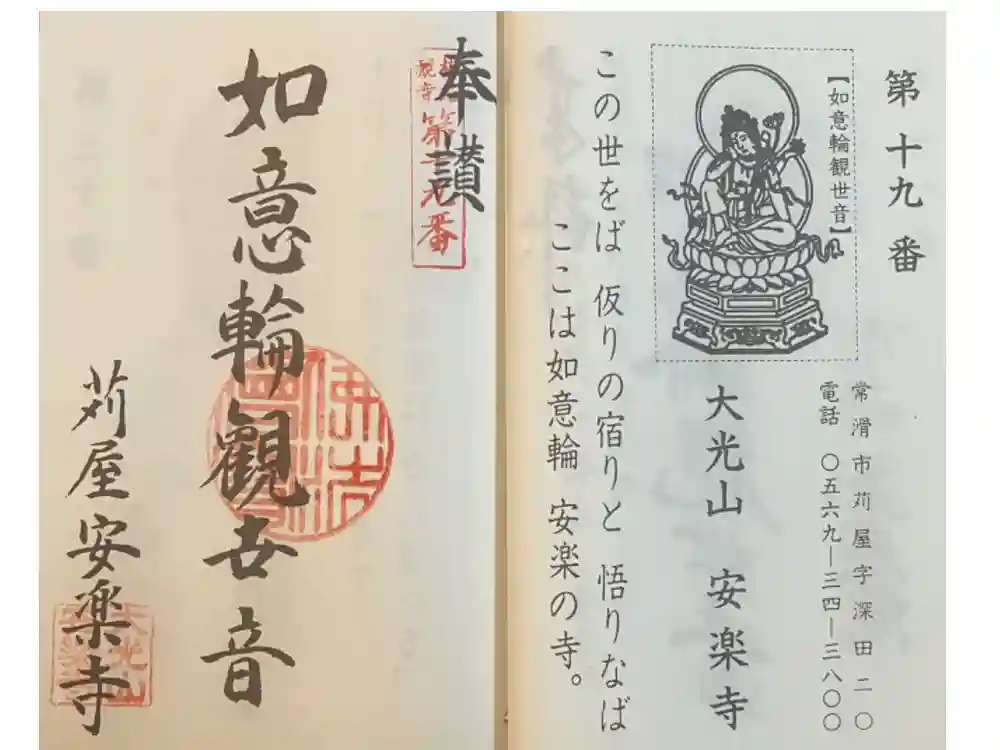 第十九番
【如意輪観世音】
常滑市苅屋字深田二〇
電話 〇五六九―三四―三八〇〇
大光山 安楽寺
この世をば 仮りの宿りと 悟りなば
ここは如意輪 安楽の寺。
奉讃
第十九番
如意輪觀世音
苅屋安楽寺
大光山